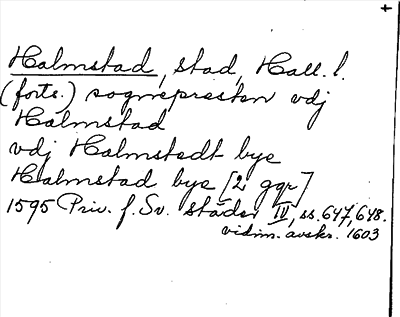 Halmstad, stad, Hall. l.
(forts.) sognepresten vdj
Halmstad
vdj Halmstedt bye
Halmstad bye [2 ggr]
1595 Priv. f. Sv. städer IV, ss. 647, 648.
vidim. avskr. 1603